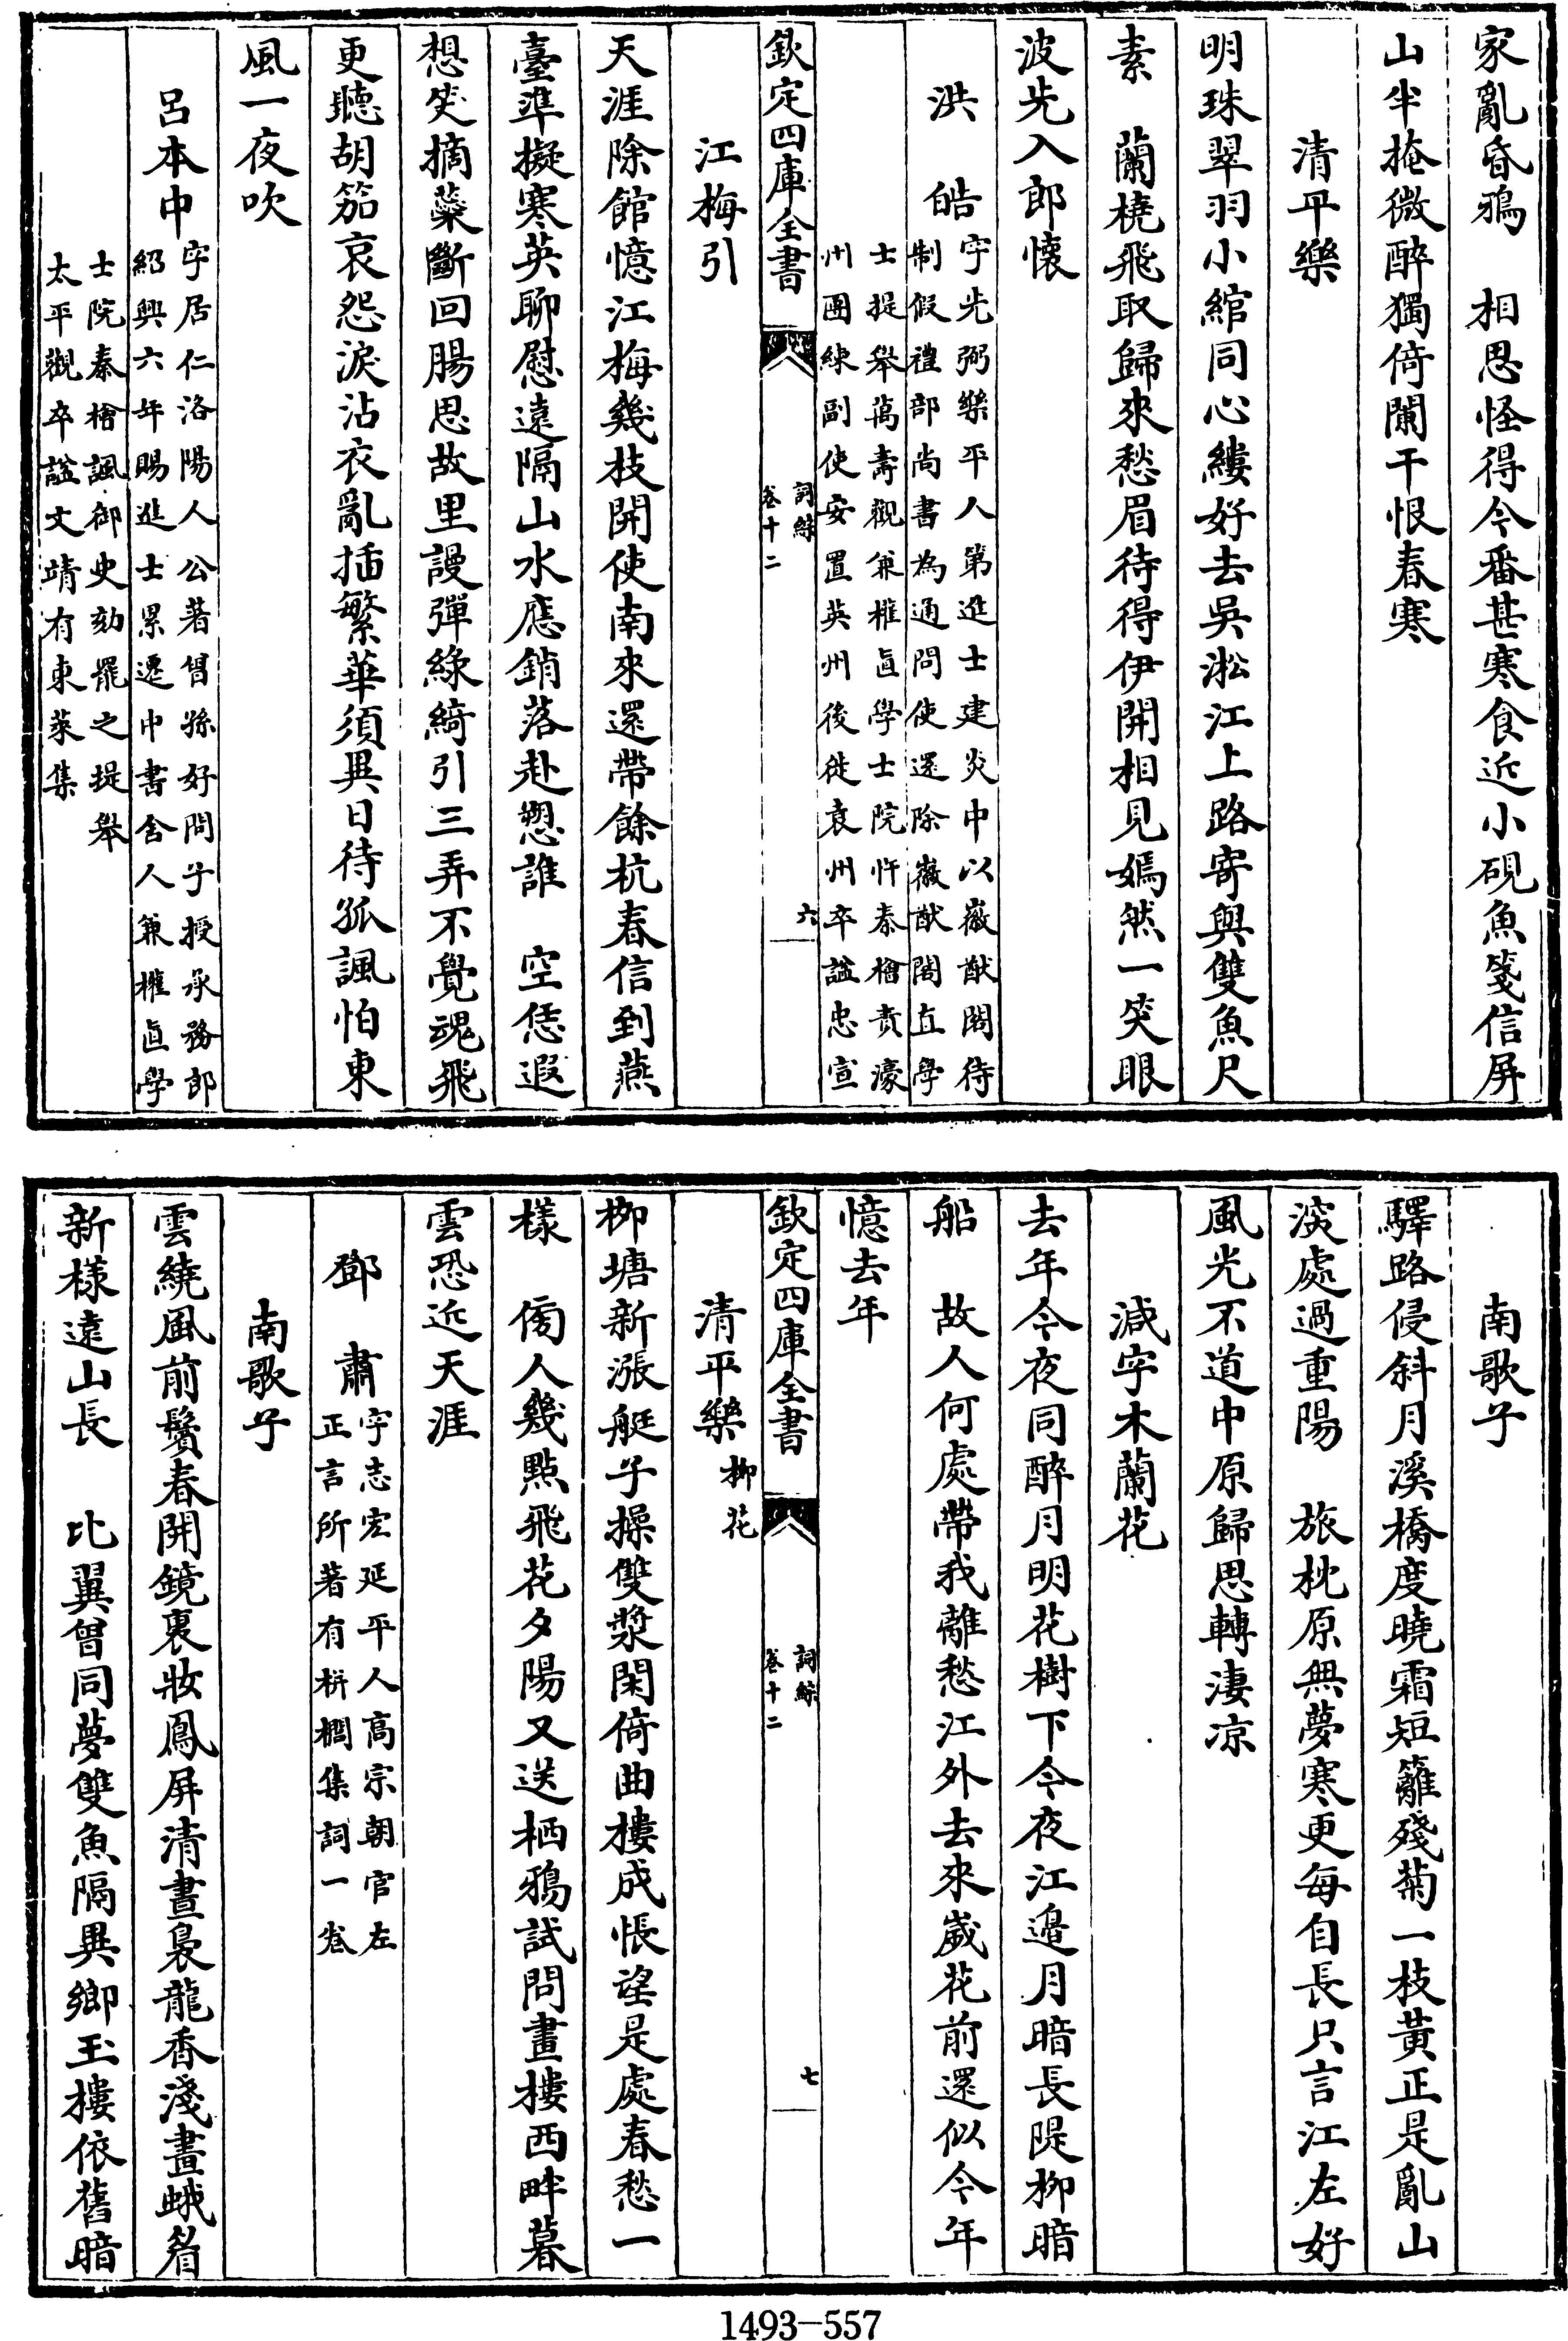 家亂昏鴉　相思怪得今番甚寒食近小硯魚箋信屏
山半掩微醉獨倚闌干恨春寒
清平樂
明珠翠羽小綰同心縷好去吳淞江上路寄與雙魚尺
素　蘭橈飛取歸來愁眉待得伊開相見嫣然一笑眼
波先入郎懷
洪　皓字光弼樂平人第進士建炎中以徽猷閣待
制假禮部尚書為通問使還除徽猷閣直學
士提舉萬壽觀兼權直學士院忤秦檜責濠
州團練副使安置英州後徙袁州卒諡忠宣
欽定四庫全書
詞綜
卷十二
六
江梅引
天涯除館憶江梅幾枝開使南來還帶餘杭春信到燕
臺準擬寒英聊慰遠隔山水應銷落赴愬誰　空恁遐
想笑摘蘂斷回腸思故里謾彈綠綺引三弄不覺魂飛
更聽胡笳哀怨淚沾衣亂插繁華須異日待孤諷怕東
風一夜吹
呂本中字居仁洛陽人公著曾孫好問子授承務郎
紹興六年賜進士累遷中書舍人兼權直學
士院秦檜諷御史劾罷之提舉
太平觀卒諡文靖有東萊集
南歌子
驛路侵斜月溪橋度曉霜短籬殘菊一枝黃正是亂山
深處過重陽　旅枕原無夢寒更每自長只言江左好
風光不道中原歸思轉淒涼
減字木蘭花
去年今夜同醉月明花樹下今夜江邊月暗長隄柳暗
船　故人何處帶我離愁江外去來歲花前還似今年
憶去年
欽定四庫全書
詞綜
卷十二
七
清平樂柳花
柳塘新漲艇子操雙槳閑倚曲樓成悵望是處春愁一
樣　傍人幾點飛花夕陽又送栖鴉試問畫樓西畔暮
雲恐近天涯
鄧　肅字志宏延平人高宗朝官左
正言所著有栟櫚集詞一卷
南歌子
雲繞風前鬢春開鏡裏妝鳳屏清晝裊龍香淺畫蛾眉
新樣遠山長　比翼曾同夢雙魚隔異鄉玉樓依舊暗
1493—557